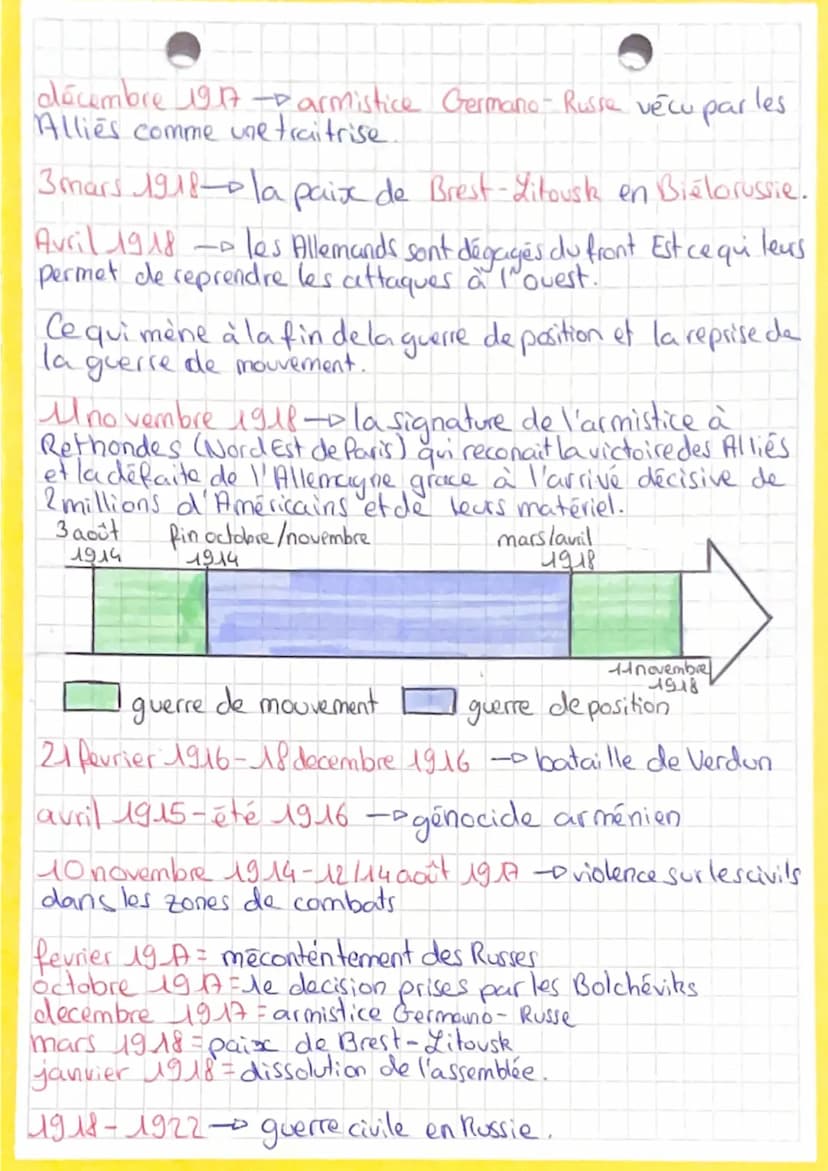 décembre 1917 → armistice Germano-Russe vécu par les
Alliés comme une traitrise.
3 mars 1918 → la paix de Brest-Litovsk en Biélorussie.
Avril 1918 → les Allemands sont dégagés du front Est ce qui leurs
permet de reprendre les attaques à l'ouest.
Ce qui mène à la fin de la guerre de position et la reprise de
la guerre de mouvement.
11 novembre 1918 → la signature de l'armistice à
Rethondes (Nord Est de Paris) qui reconait la victoire des Alliés
et la défaite de l'Allemagne grace à l'arrivé décisive de
2 millions d'Américains et de leurs matériel.
3 août fin octobre/novembre mars/avril
1914 1914 1918
11 novembre
1918
guerre de mouvement guerre de position
21 fevrier 1916-18 decembre 1916 → bataille de Verdun
avril 1915-été 1916 → génocide arménien
10 novembre 1914-12/14 août 1917 → violence sur les civils
dans les zones de combats
fevrier 1917 = mécontentement des Russes
octobre 1917 = 1e decision prises par les Bolchéviks
decembre 1917 = armistice Germano-Russe
mars 1918 = paix de Brest-Litovsk
janvier 1918 = dissolution de l'assemblée.
1918-1922 → guerre civile en Russie.